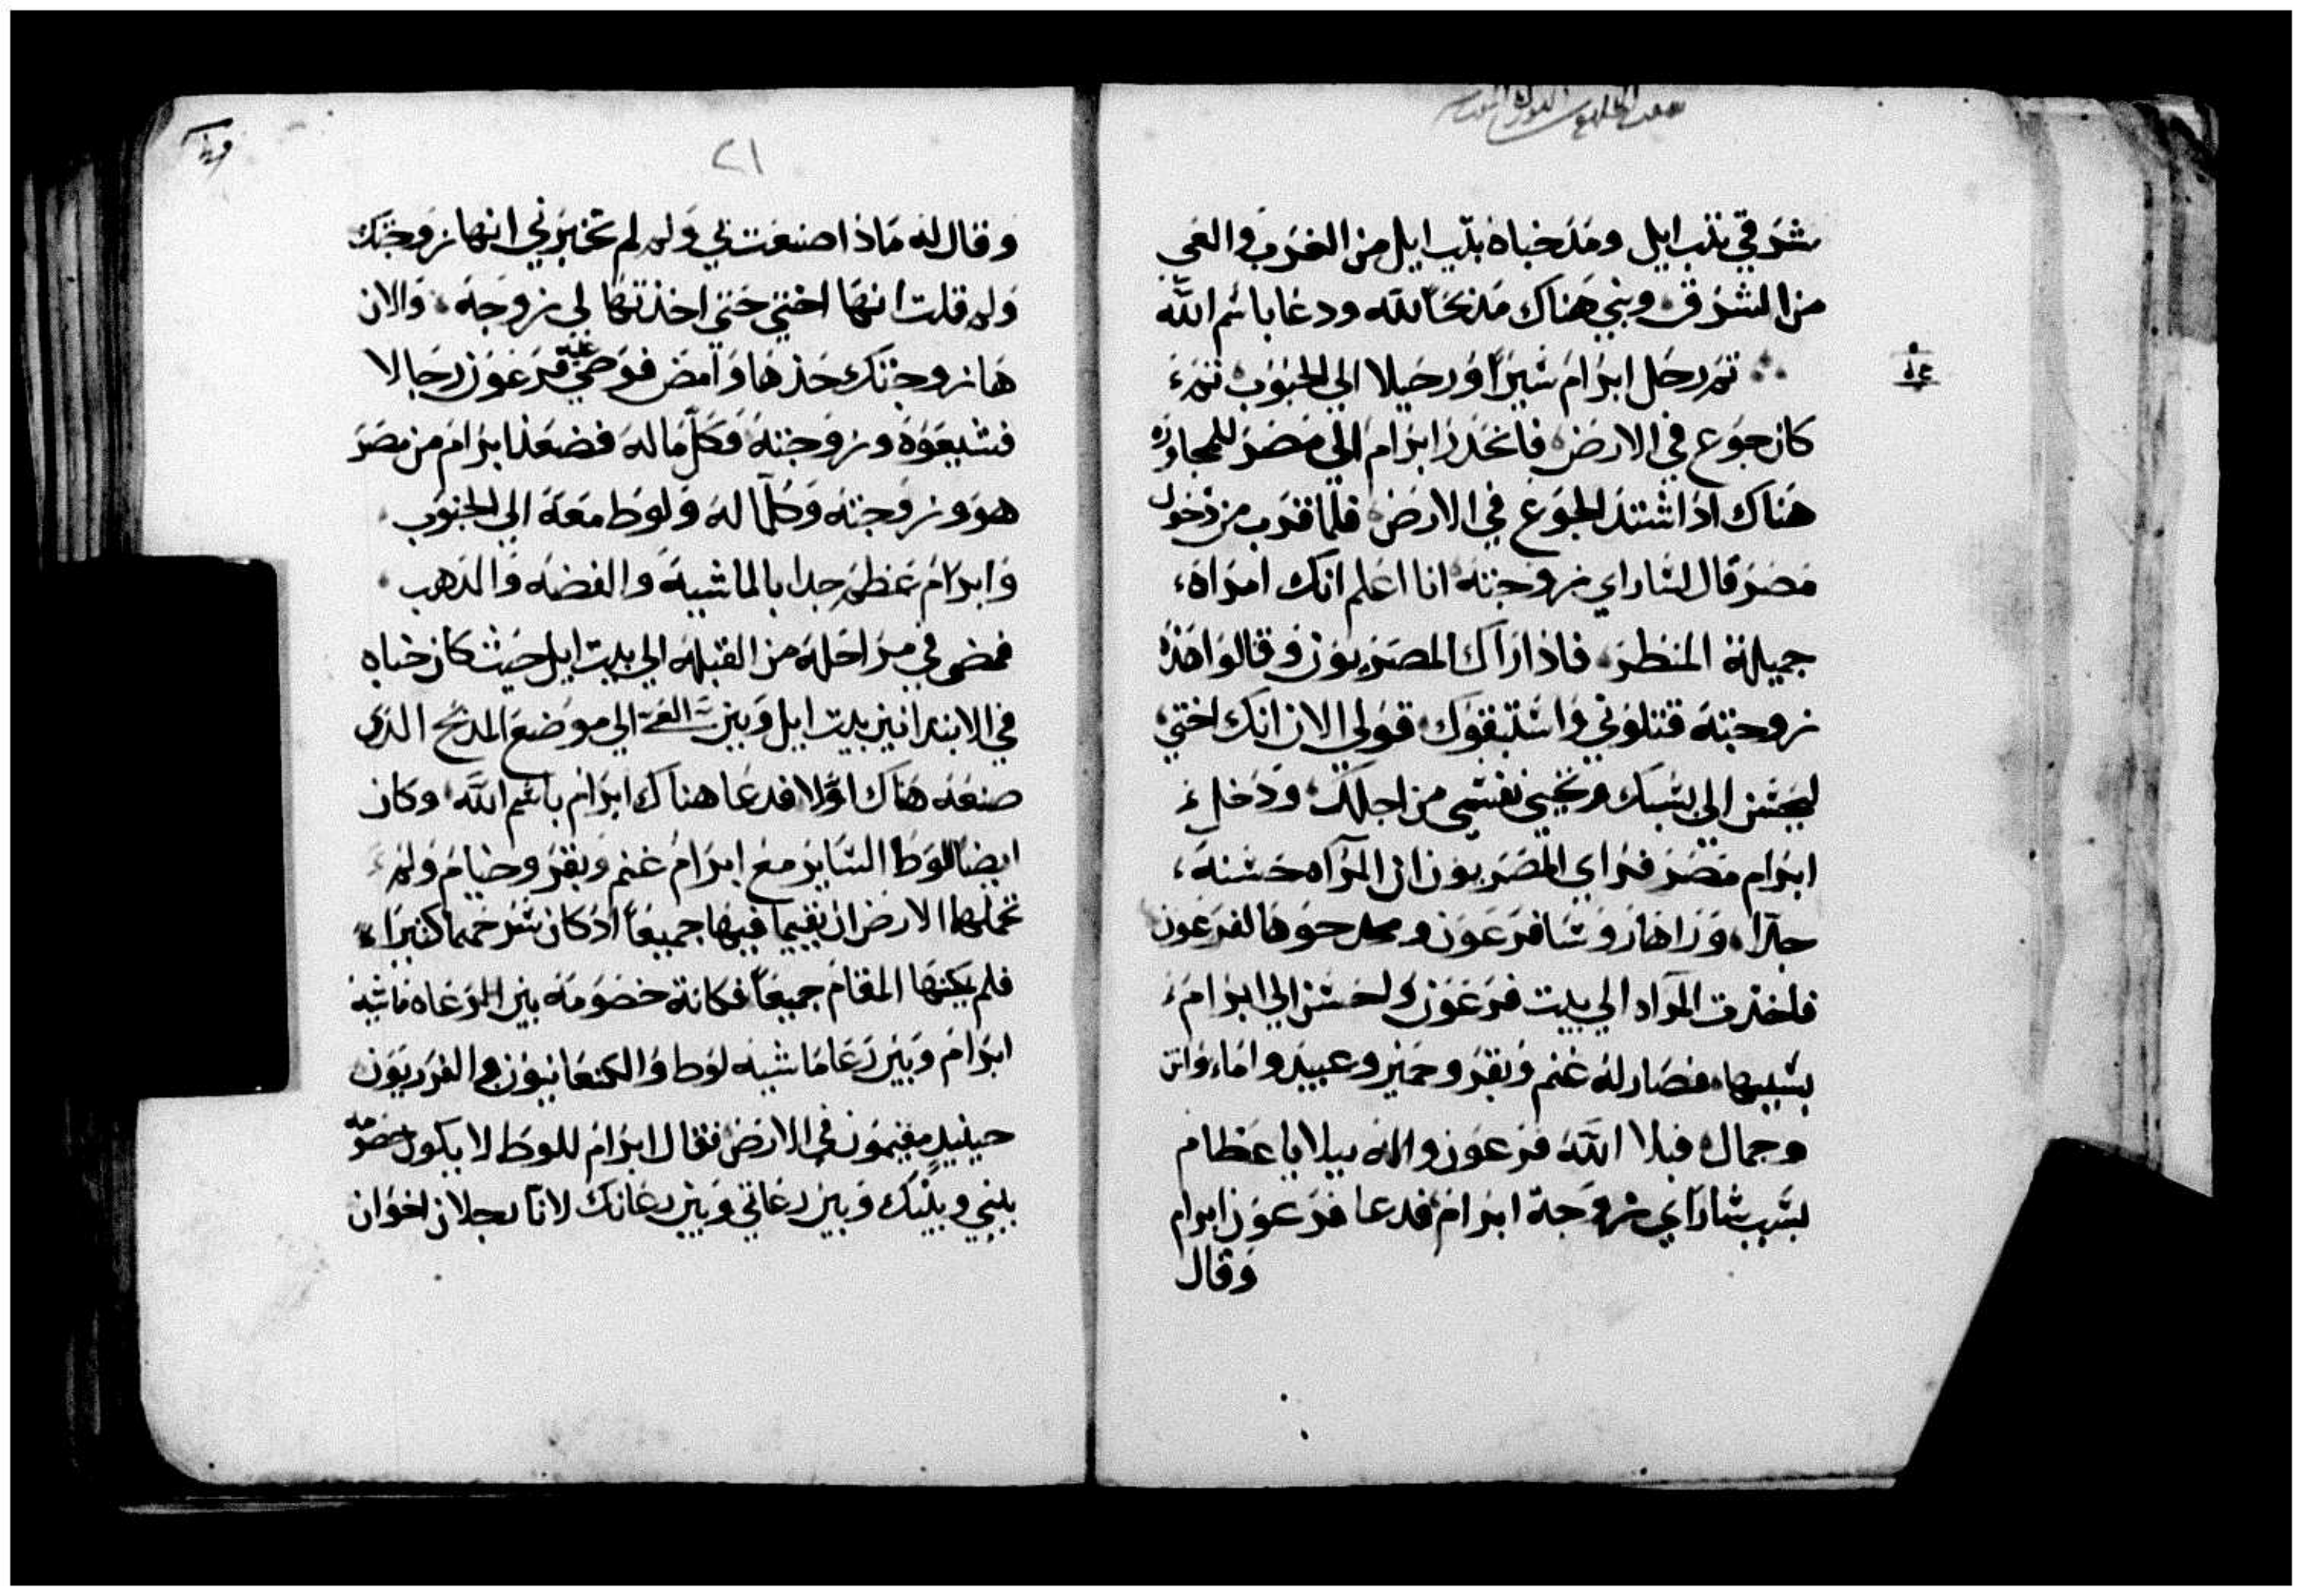 شرقي بيت ايل ومد خباه بيت ايل من الغرب والغي
من الشرق وبني هناك مذبحا لله ودعا باسم الله
ثم رحل ابرام سيرا ورحيلا الي الجنوب ثم
كان جوع في الارض فانحدر ابرام الي مصر للمجاوره
هناك اذ اشتد الجوع في الارض فلما قرب من دخول
مصر قال لساراي زوجته انا اعلم انك امراه
جميلة المنظر فاذا راك المصريون وقالوا هذه
زوجته قتلوني واستبقوك قولي الان انك اختي
ليحسن الي بسببك وتحيي نفسي من اجلك ودخل
ابرام مصر فراي المصريون ان المراه حسنة
جدا وراها روسا فرعون لفرعون
فاخذت المراه الي بيت فرعون واحسن الي ابرام
بسببها فصار له غنم وبقر وحمير وعبيد واماء واتن
وجمال فبلا الله فرعون واله ببلايا عظام
بسبب ساراي زوجة ابرام فدعا فرعون ابرام
وقال
٢١
وقال له ماذا صنعت بي ولم لم تخبرني انها زوجتك
ولم قلت انها اختي حتي اخذتها لي زوجة والان
ها زوجتك خذها وامض فوصي عليه فرعون رجالا
فشيعوه وزوجته وكل ماله فصعد ابرام من مصر
هو وزوجته وكلما له ولوط معه الي الجنوب
وابرام عظم جدا بالماشية والفضه والذهب
فمضي في مراحله من القبله الي بيت ايل حيث كان خباه
في الابتدا بين بيت ايل وبين الغي الي موضع المدبح الذي
صنعه هناك اولا فدعا هناك ابرام باسم الله وكان
ايضا للوط الساير مع ابرام غنم وبقر وخيام ولم
تحملهما الارض ان يقيما فيها جميعا اذ كان سرحهما كثيرا
فلم يمكنها المقام جميعا فكانة خصومة بين رعاه ماشية
ابرام وبين رعا ماشية لوط والكنعانيون والفرريون
حينيد مقيمون في الارض فقال ابرام للوط لا يكون خصومه
بيني وبينك وبين رعاتي وبين رعاتك لانا رجلان اخوان